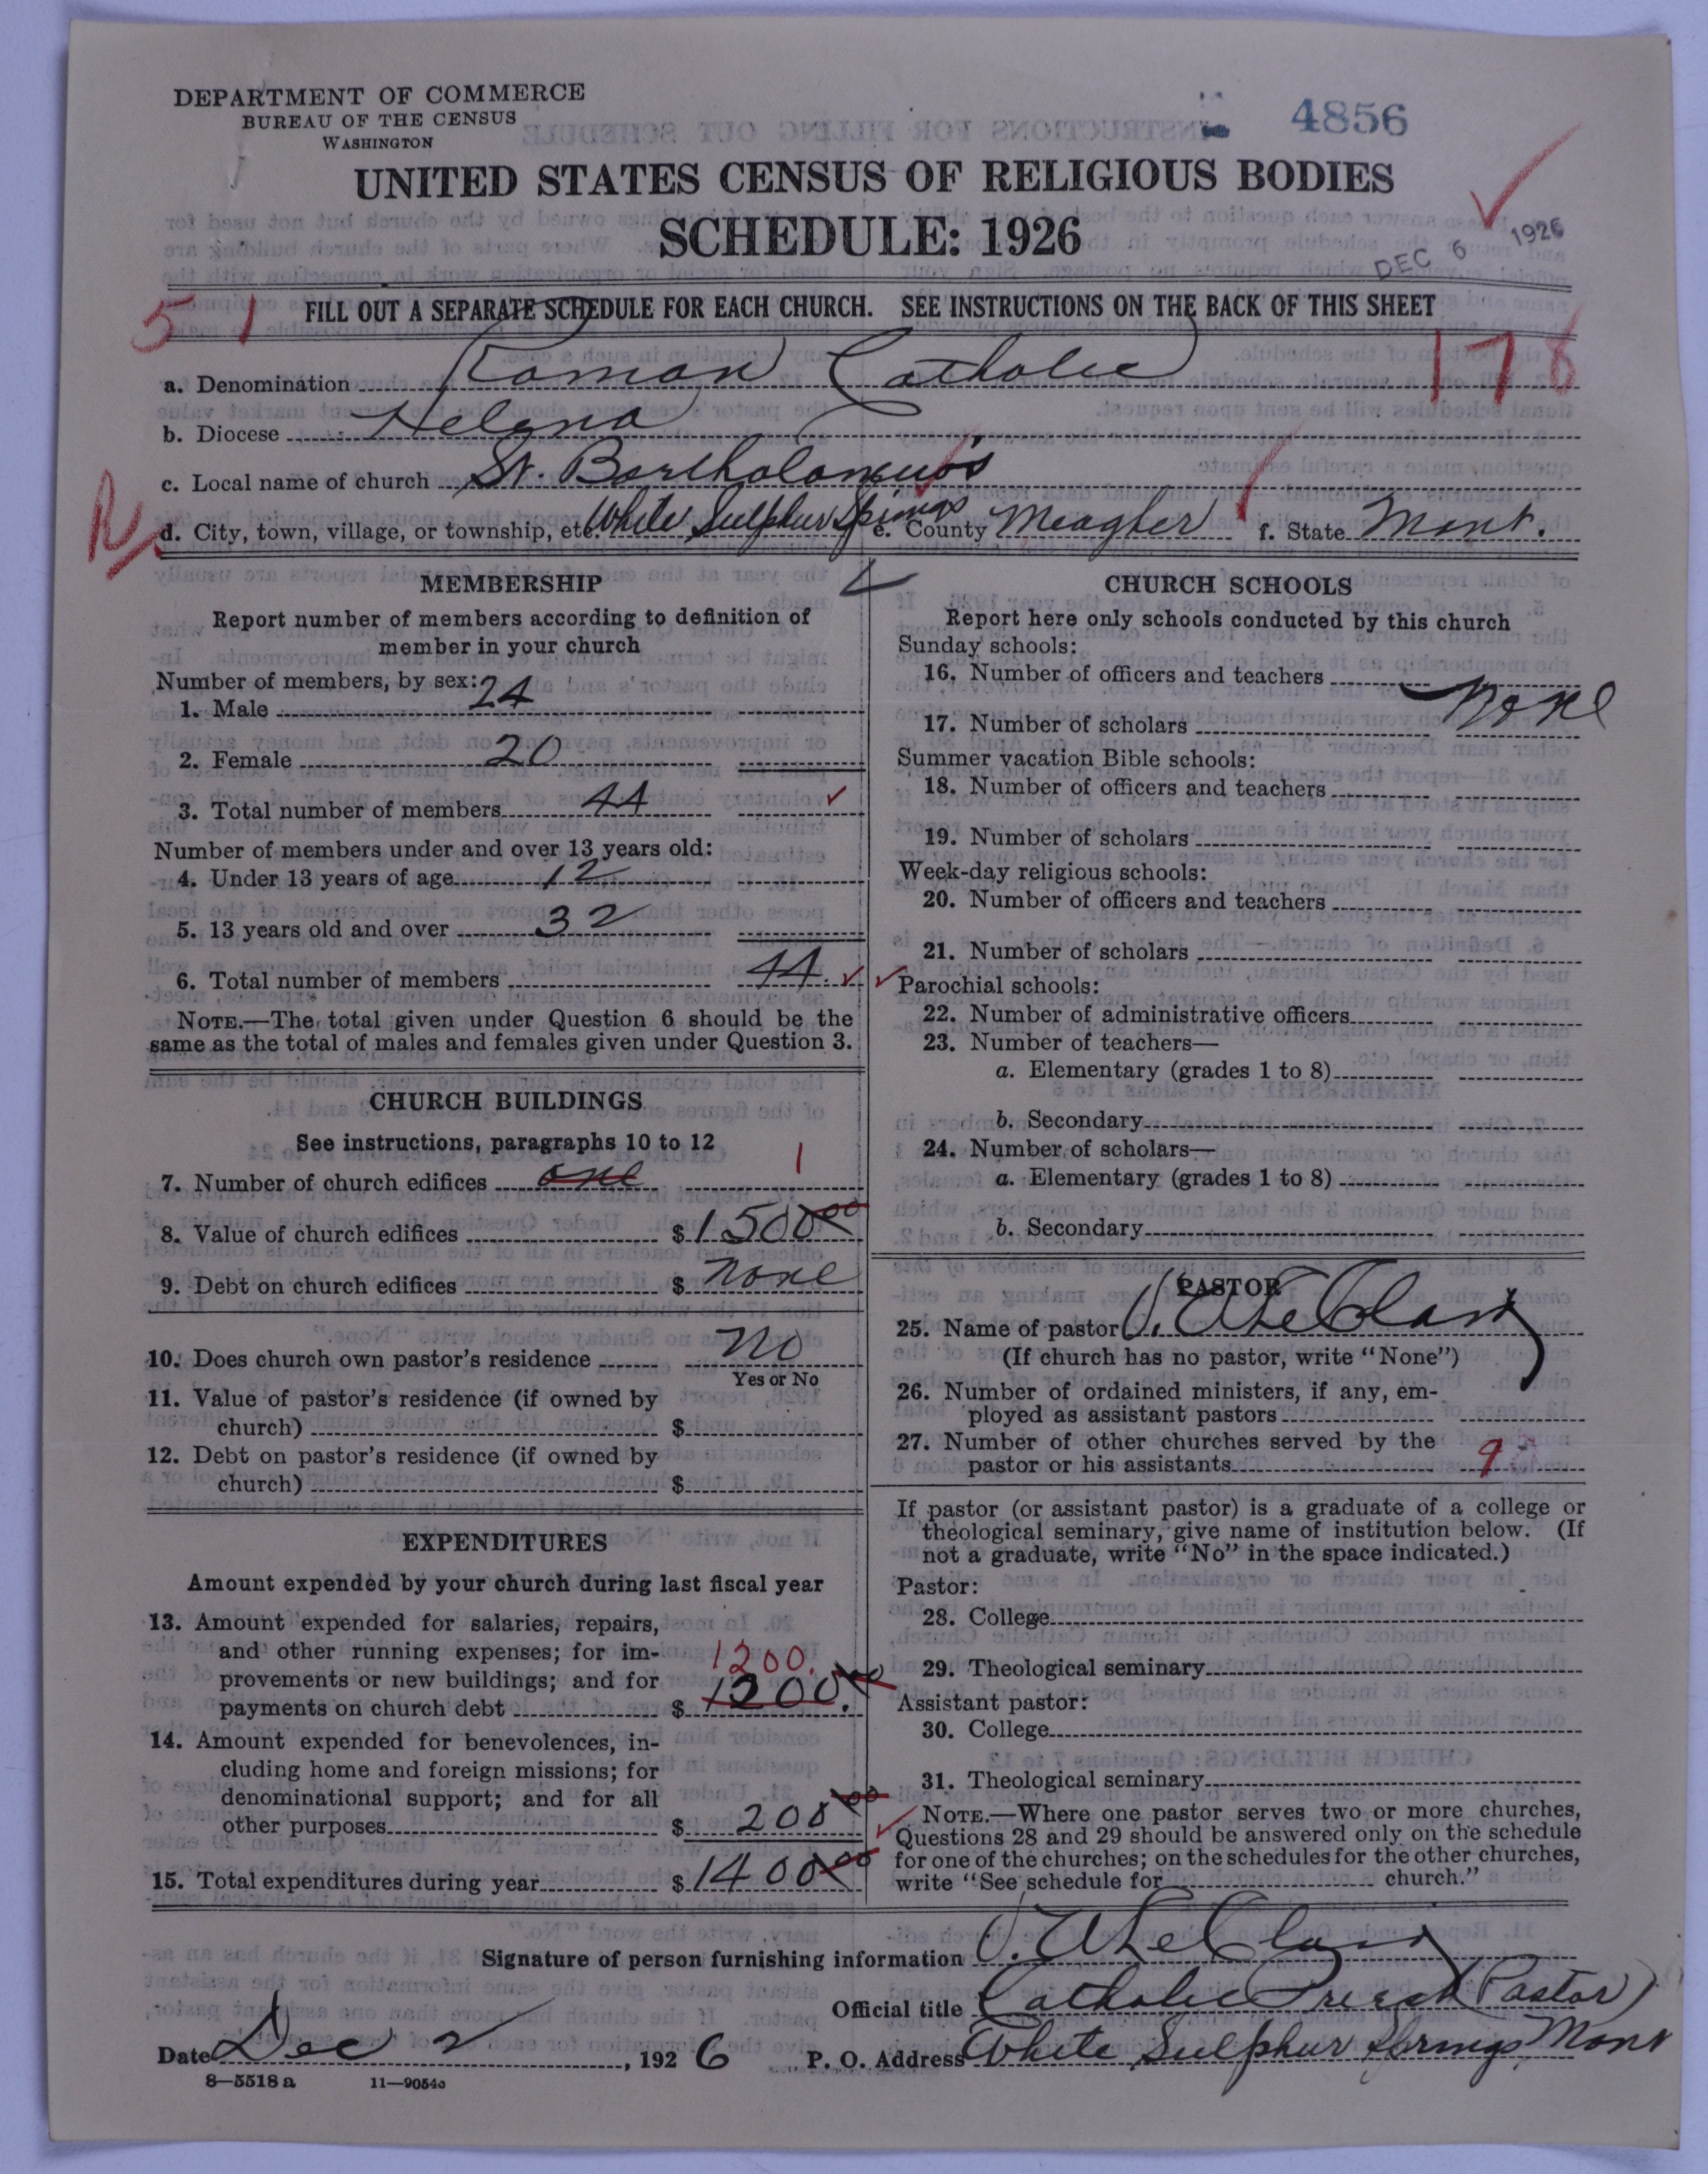 DEPARTMENT OF COMMERCE
BUREAU OF THE CENSUS
WASHINGTON
4856
UNITED STATES CENSUS OF RELIGIOUS BODIES
SCHEDULE: 1926
DEC 6 1926
51
FILL OUT A SEPARATE SCHEDULE FOR EACH CHURCH. SEE INSTRUCTIONS ON THE BACK OF THIS SHEET
178
a. Denomination Roman Catholic
b. Diocese Helena
c. Local name of church St. Bartholomew's
R
d. City, town, village, or township, etc. White Sulphur Springs e. County Meagher f. State Mont.
MEMBERSHIP
Report number of members according to definition of
member in your church
Number of members, by sex:
1. Male 24
2. Female 20
3. Total number of members 44
Number of members under and over 13 years old:
4. Under 13 years of age 12
5. 13 years old and over 32
6. Total number of members 44
NOTE.—The total given under Question 6 should be the
same as the total of males and females given under Question 3.
CHURCH BUILDINGS
See instructions, paragraphs 10 to 12
7. Number of church edifices one 1
8. Value of church edifices $ 1500 00
9. Debt on church edifices $ none
10. Does church own pastor's residence No
Yes or No
11. Value of pastor's residence (if owned by
church) $
12. Debt on pastor's residence (if owned by
church) $
EXPENDITURES
Amount expended by your church during last fiscal year
13. Amount expended for salaries, repairs,
and other running expenses; for im-
1200.
provements or new buildings; and for
payments on church debt $ 1200. 00
14. Amount expended for benevolences, in-
cluding home and foreign missions; for
denominational support; and for all
other purposes $ 200 00
15. Total expenditures during year $ 1400 00
CHURCH SCHOOLS
Report here only schools conducted by this church
Sunday schools:
16. Number of officers and teachers
None
17. Number of scholars
Summer vacation Bible schools:
18. Number of officers and teachers
19. Number of scholars
Week-day religious schools:
20. Number of officers and teachers
21. Number of scholars
Parochial schools:
22. Number of administrative officers
23. Number of teachers—
a. Elementary (grades 1 to 8)
b. Secondary
24. Number of scholars—
a. Elementary (grades 1 to 8)
b. Secondary
PASTOR
25. Name of pastor
(If church has no pastor, write "None")
26. Number of ordained ministers, if any, em-
ployed as assistant pastors
27. Number of other churches served by the
pastor or his assistants 9
If pastor (or assistant pastor) is a graduate of a college or
theological seminary, give name of institution below. (If
not a graduate, write "No" in the space indicated.)
Pastor:
28. College
29. Theological seminary
Assistant pastor:
30. College
31. Theological seminary
NOTE.—Where one pastor serves two or more churches,
Questions 28 and 29 should be answered only on the schedule
for one of the churches; on the schedules for the other churches,
write "See schedule for church."
Signature of person furnishing information
Official title Catholic Priest (Pastor)
Date Dec 2, 1926 P. O. Address White Sulphur Springs, Mont
8—5518 a 11—9054c